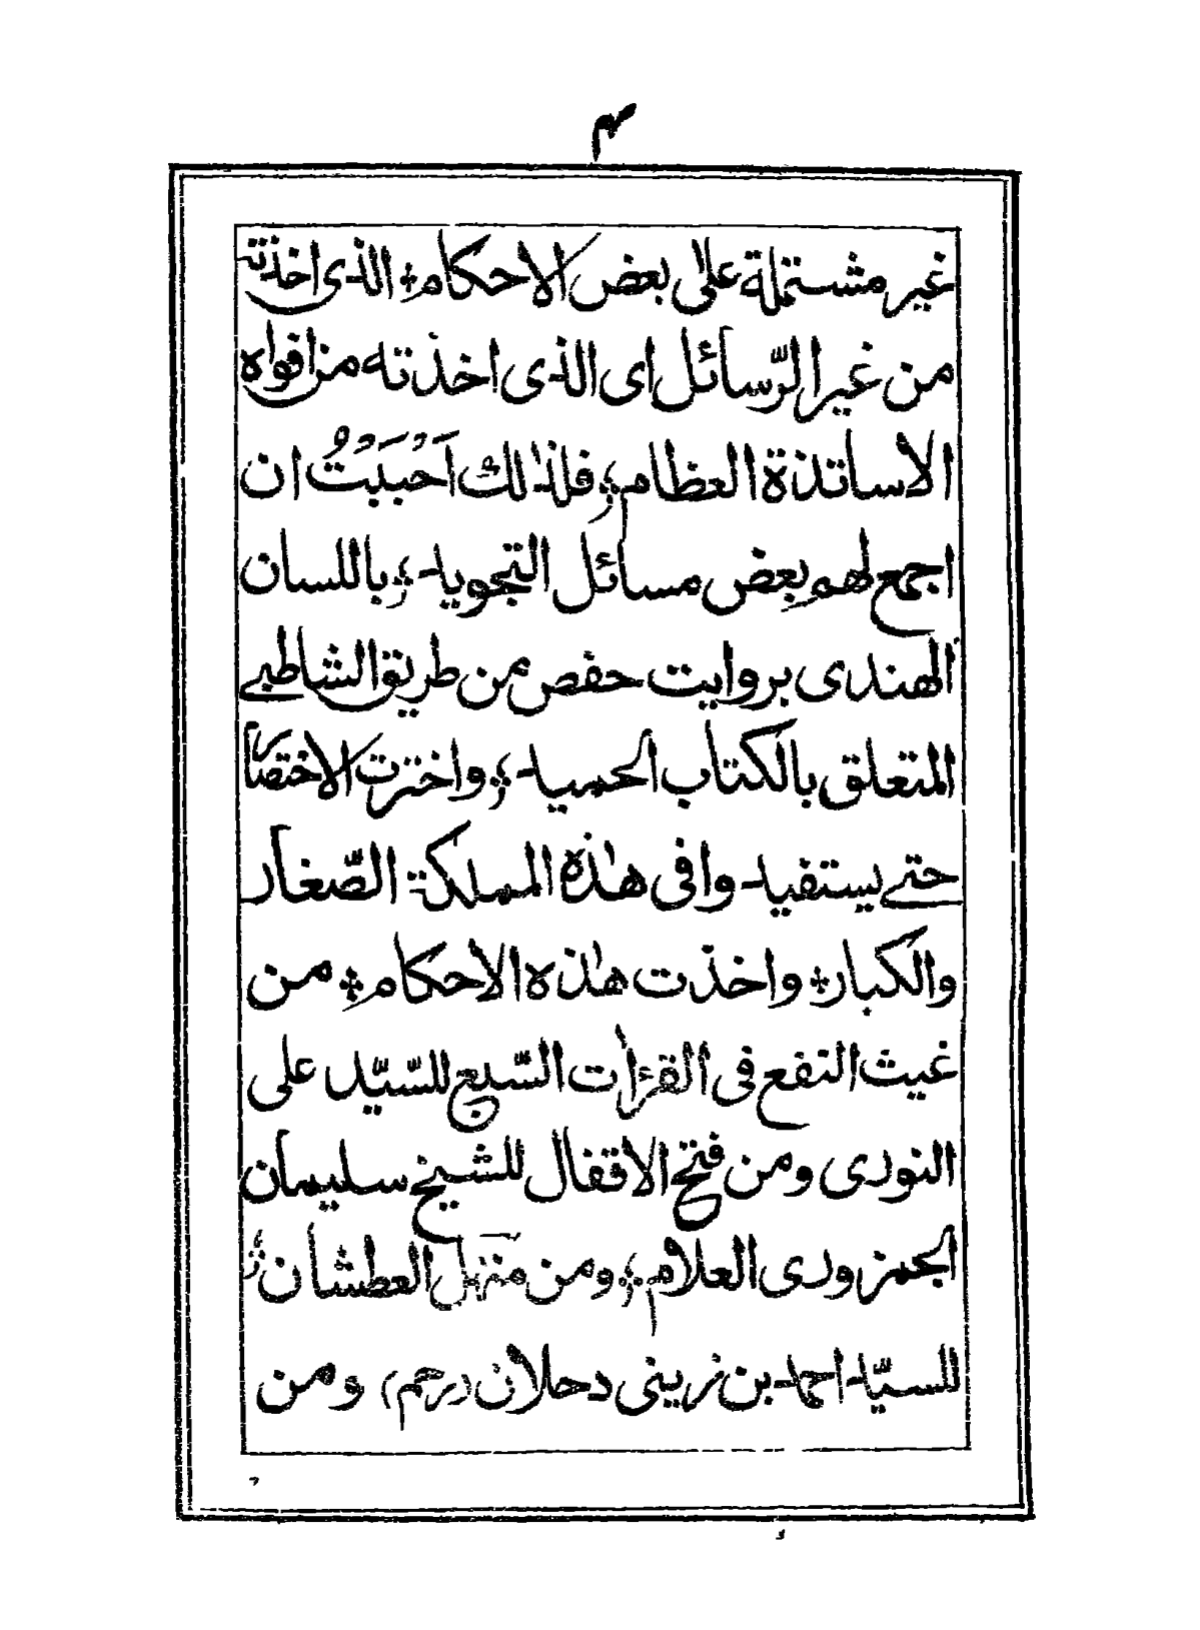 ۴
غير مشتملة على بعض الاحكام؞ الذى اخذته
من غير الرّسائل اى الذى اخذته من افواه
الاساتذة العظام؞ فلذٰلك اَحْبَبْتُ ان
اجمع لهم بعض مسائل التجويد؞ باللسان
الهندى بروايت حفص من طريق الشاطبے
المتعلق بالكتاب الحميد؞ واخترت الاختصار
حتے يستفيدوا فى هٰذه المملكة الصّغار
والكبار؞ واخذت هٰذه الاحكام؞ من
غيث النفع فى القرءٰات السّبع للسّيّد على
النورى ومن فتح الاقفال للشيخ سليمان
الجمزورى العلام؞ ومن منهل العطشان
للسيّد احمد بن زينى دحلان (رحم) ومن